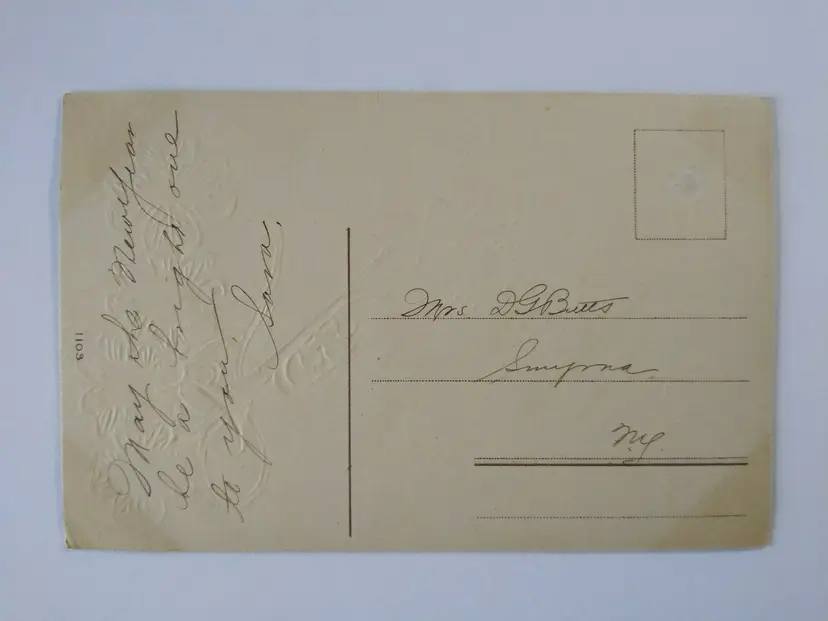 May the New Year
be a bright one
to you. Sara.
1103
Mrs. D G Butts
Smyrna
N.Y.